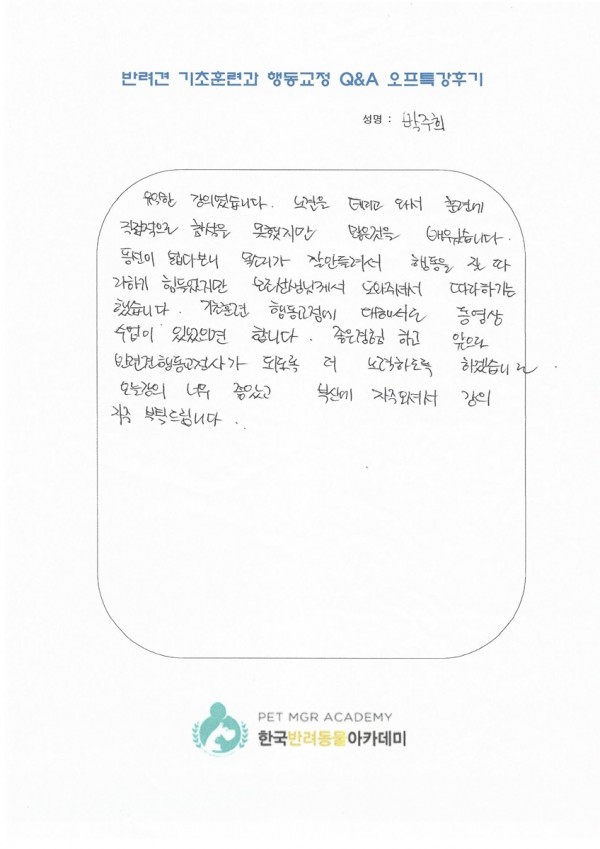 반려견 기초훈련과 행동교정 Q&A 오프특강후기
성명 : 박주희
유익한 강의였습니다. 노견을 데리고 와서 훈련에
직접적으로 참석을 못했지만 많은것을 배웠습니다.
동선이 넓다보니 목소리가 잘안들려서 행동을 잘 따
라하기 힘들었지만 보조선생님께서 도와주셔서 따라하기는
했습니다. 기초훈련 행동교정에 대해서는 동영상
수업이 있었으면 합니다. 좋은경험 하고 앞으로
반려견행동교정사가 되도록 더 노력하도록 하겠습니다.
오늘강의 너무 좋았고 부산에 자주오셔서 강의
자주 부탁드립니다.
PET MGR ACADEMY
한국반려동물아카데미